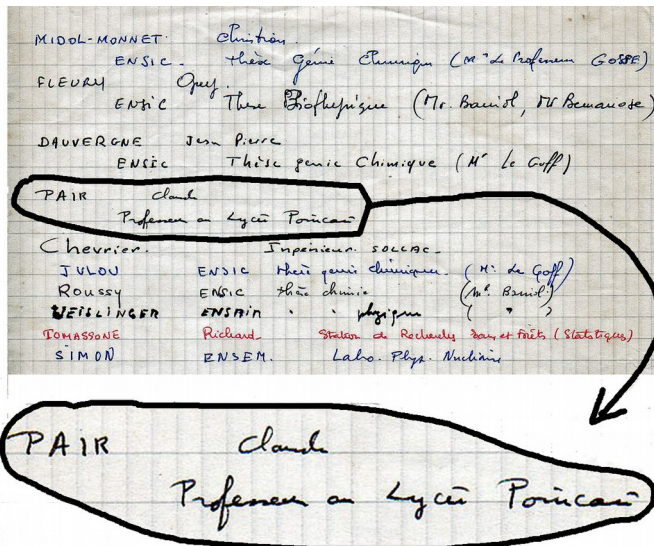 MIDOL-MONNET Christian.
ENSIC. thèse Génie Chimique (Mr Le Professeur GOSSE)
FLEURY Guy.
ENSIC These (Mr. Baurol, Mr
DAUVERGNE Jean Pierre
ENSIC Thèse genie Chimique (Mr Le Goff)
PAIR Claude
Professeur au Lycée Poincaré
Chevrier. Ingénieur SOLLAC.
JULOU ENSIC thèse genie chimique. (Mr. Le Goff)
Roussy ENSIC thèse chimie (Mr.
WEISLINGER ENSAIA " " physique ( " )
TOMASSONE Richard Station de Recherches Eaux et Forêts (Statistiques)
SIMON ENSEM. Labo. Phys. Nucléaire
PAIR Claude
Professeur au Lycée Poincaré